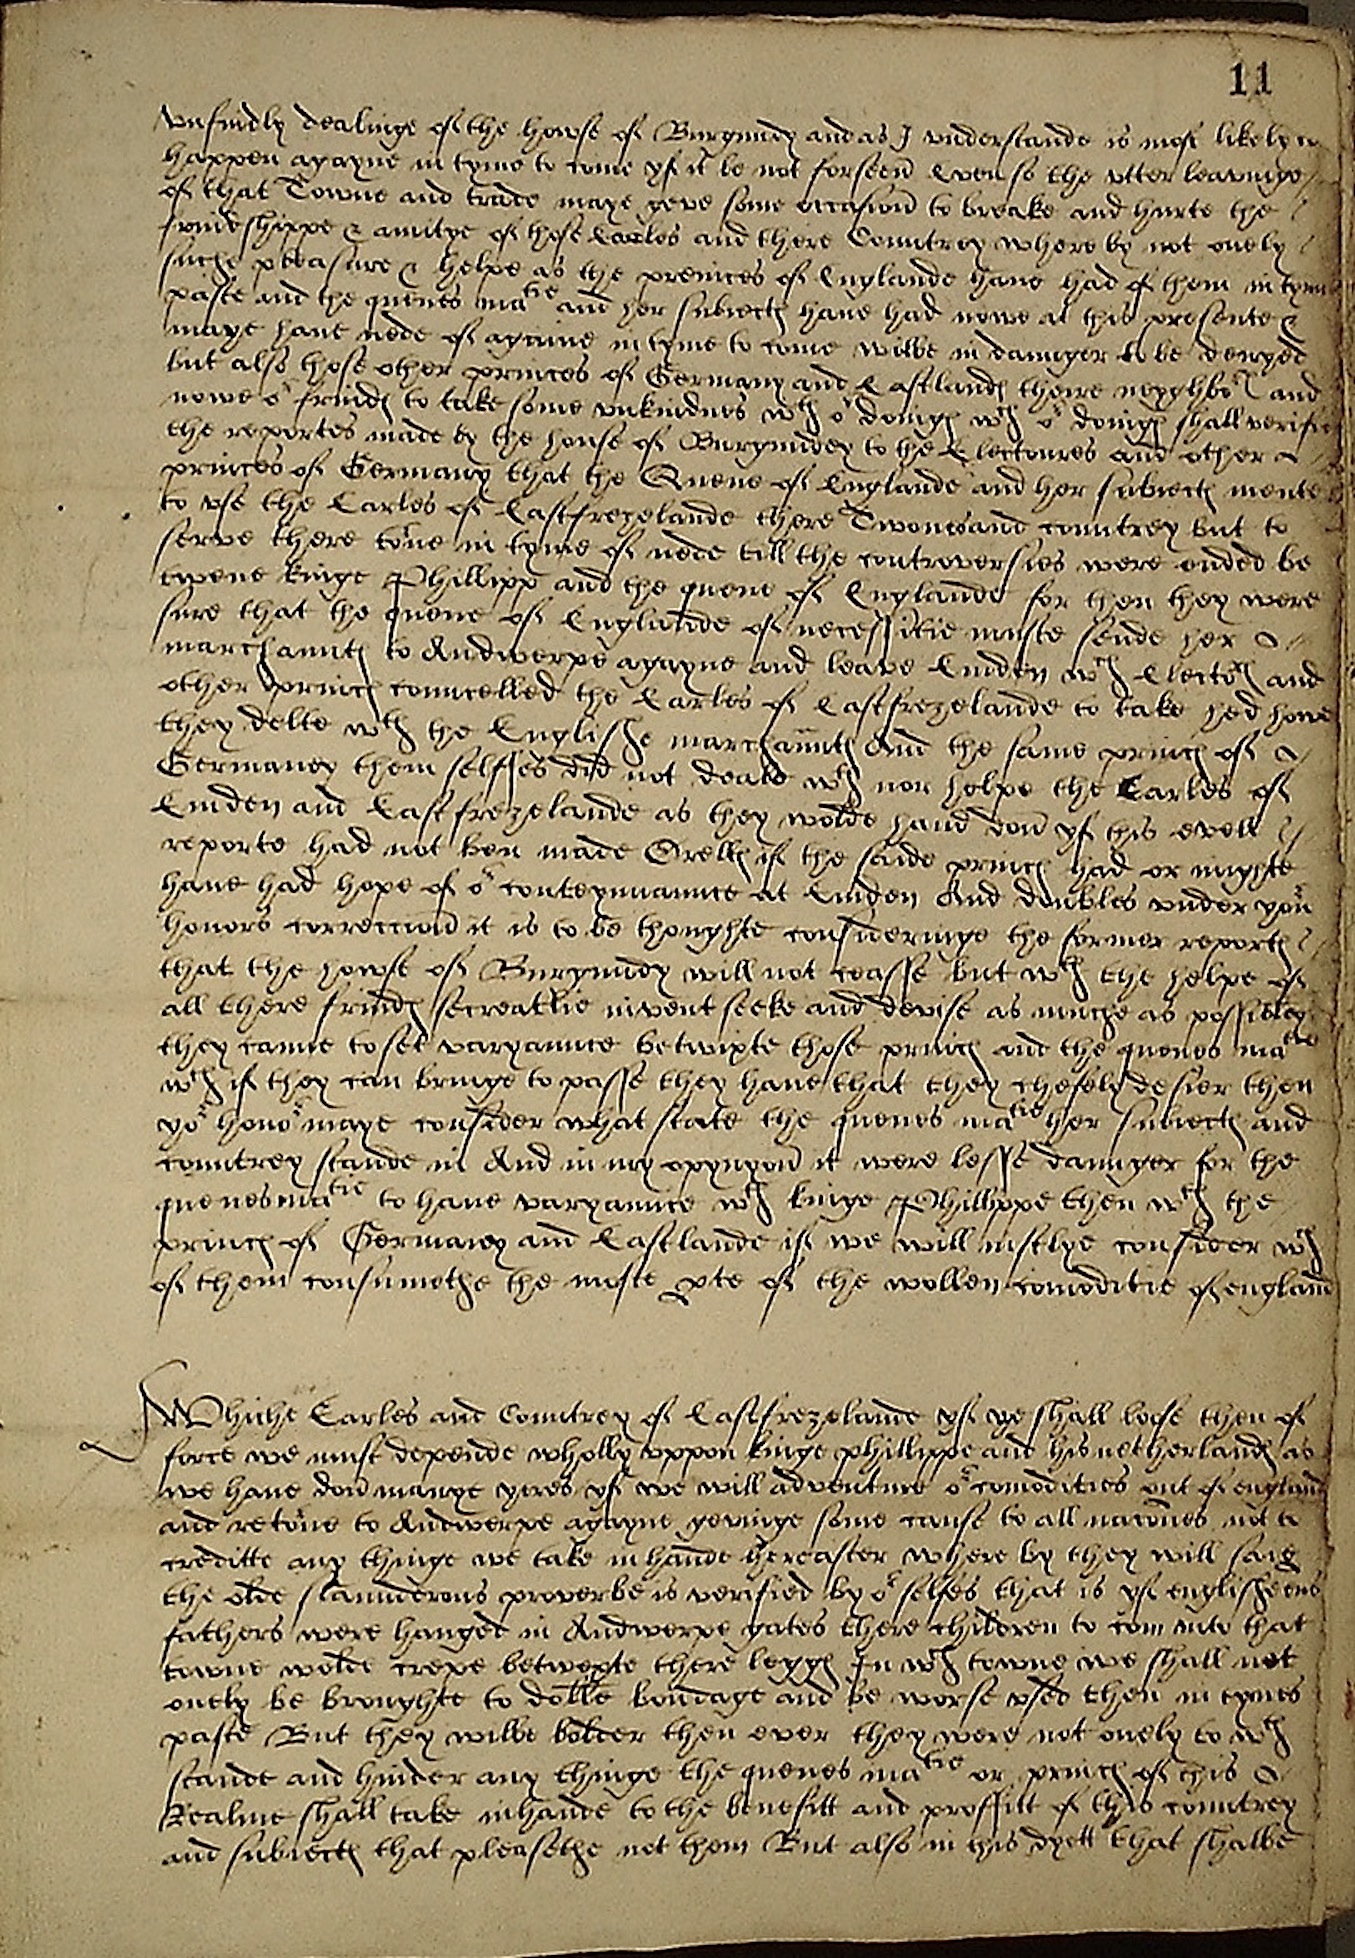 11
vnfrindly dealinge of the howse of Burgundy and as J vnderstande is most likely to
happen agayne in tyme to come yf it be not forseen Even so the vtter leavinge
of that Towne and trade maye geve some occasion to breake and hurte the
frindeshippe & amitye of those Earles and there Countrey whereby not onely
suche pleasure & helpe as the preinces of Englande haue had of them in tyme
paste and the quenes matie and her subiectes haue had nowe at this presente &
maye haue nede of againe in tyme to come wilbe in daunger to be denyed
but also those other princes of Germany and Eastlandes theire neyghbors and
nowe or frindes to take some vnkindnes wth or doinges wch or doinges shall verifie
the reportes made by the house of Burgundey to the Electoures and other
princes of Germany that the Quene of Englande and her subiectes mente
to vse the Earles of Eastfrezelande there Townes and countrey but to
serve there torne in tyme of nede till the controversies were ended be
twene kinge Phillipp and the quene of Englande for then they were
sure that the quene of Englande of necessitie muste sende her
marchauntes to Andwerpe agayne and leave Emden wch Electors and
other princes councelled the Earles of Eastfrezelande to take hed howe
they delte wth the Englishe marchauntes And the same princes of
Germaney them selffes did not deale wth nor helpe the Earles of
Emden and Eastfrezelande as they wolde haue don yf this evell
reporte had not ben made Orells if the saide princes had or mighte
haue had hope of or conteynuaunce at Emden And doubtles vnder your
honors correccion it is to be thoughte consideringe the former reportes
that the howse of Burgundy will not ceasse but wth the helpe of
all there frindes secreatlie invent seeke and devise as muche as possibley
they canne to set varyaunce betwixte those princes and the quenes matie
wch if they can bringe to passe they haue that they chefely desier then
yor honor maye consider what state the quenes matie her subiectes and
countrey stande in And in my opynyon it were lesse daunger for the
quenes matie to haue varyaunce wth kinge Phillippe then wth the
princes of Germaney and Eastlande if we will iustlye consider wch
of them consumethe the moste pte of the wollen comoditie of england
Whiche Earles and Countrey of Eastfrezelande yf ye shall loose then of
force we must depende wholly vppon kinge phillippe and his netherlandes as
we haue don manye yeres yf we will adventure or comodities out of england
and retorne to Andwerpe agayne gevinge some cause to all nacions not to
creditte any thinge we take in hande hereafter where by they will saie
the olde slaunderous proverbe is verified by or selfes that is yf englishemens
fathers were hanged in Andwerpe gates there children to com into that
towne wolde crepe betwexte there legges In wch towne we shall not
onely be broughte to doble bondage and be worse vsed then in tymes
paste But they wilbe bolder then ever they were not onely to wth
stande and hinder any thinge the quenes matie or princes of this
Realme shall take in hande to the benefitt and proffitt of this countrey
and subiectes that pleasethe not them But also in this dyett that shalbe